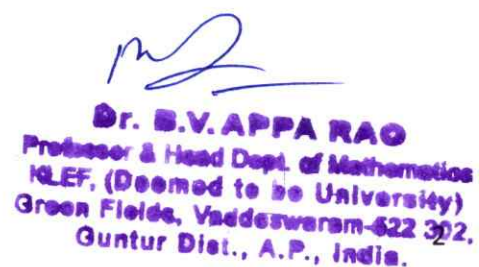 Dr. B.V. APPA RAO
Professor & Head Dept. of Mathematics
KLEF, (Deemed to be University)
Green Fields, Vaddeswaram-522 302,
2
Guntur Dist., A.P., India.